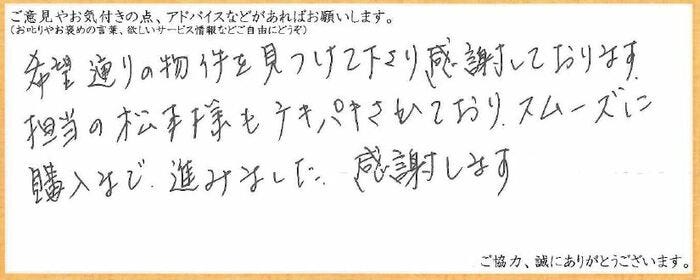 ご意見やお気付きの点、アドバイスなどがあればお願いします。
(お叱りやお褒めの言葉、欲しいサービス情報などご自由にどうぞ)
希望通りの物件を見つけて下さり感謝しております。
担当の松本様もテキパキされており、スムーズに
購入まで、進みました。感謝します
ご協力、誠にありがとうございます。